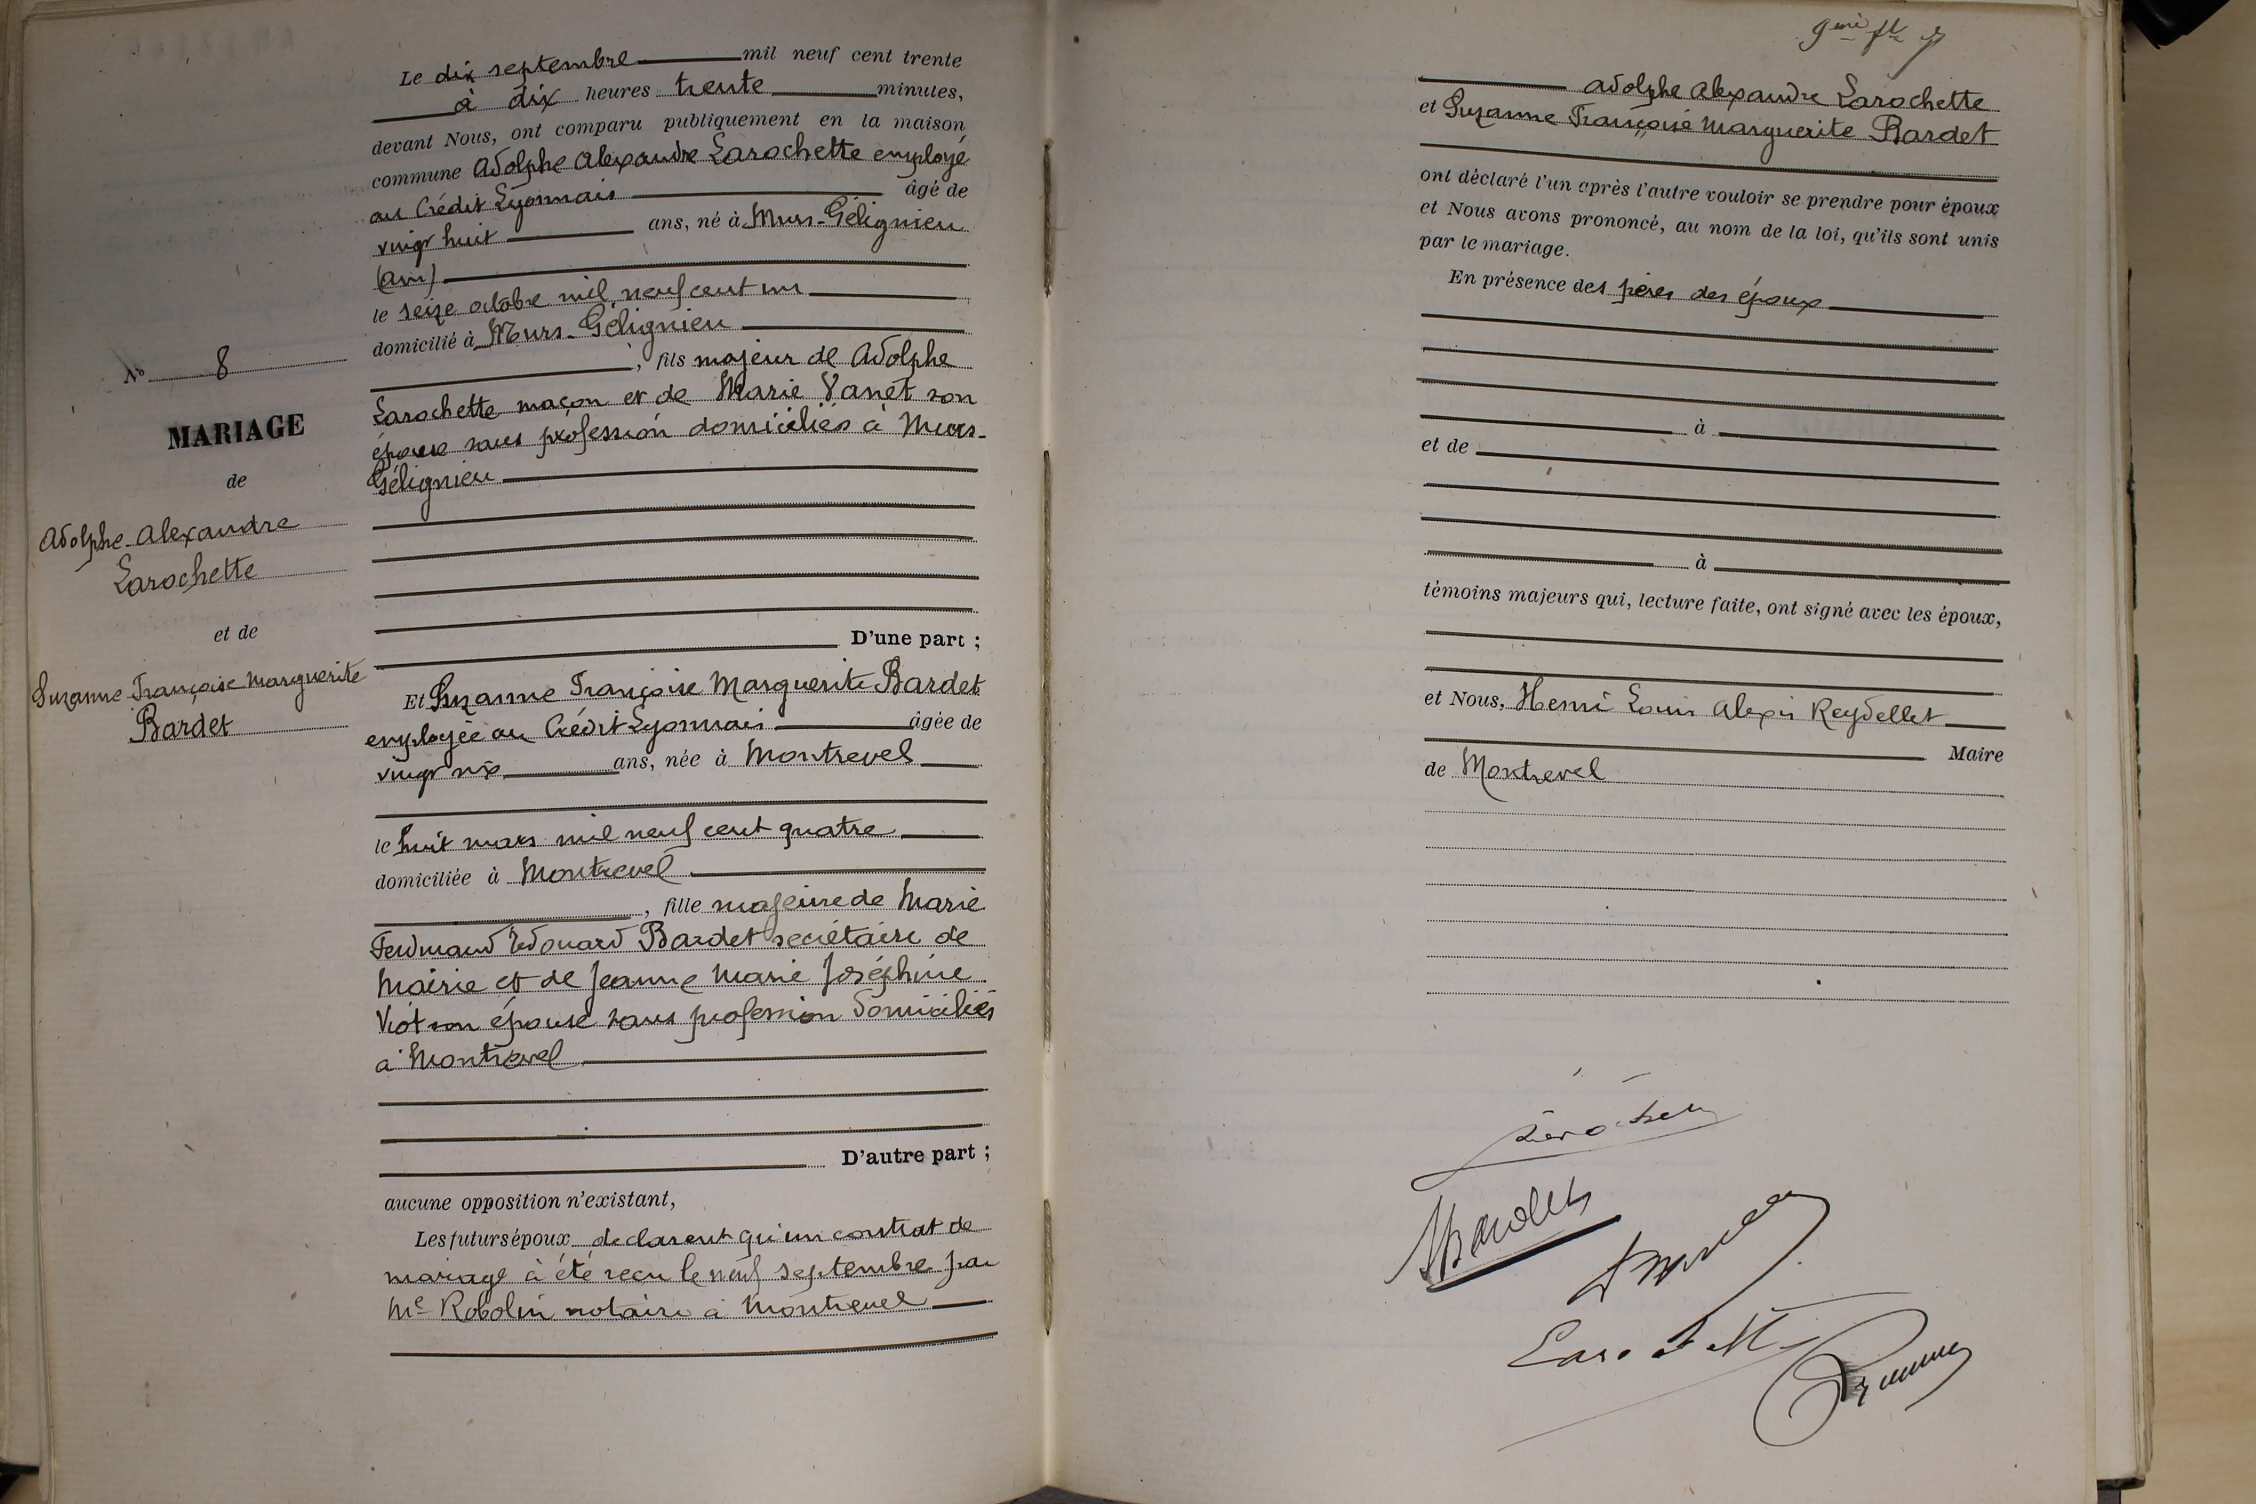 Le dix septembre mil neuf cent trente
à dix heures trente minutes,
devant Nous, ont comparu publiquement en la maison
commune Adolphe Alexandre Larochette employé
au Crédit Lyonnais âgé de
vingt huit ans, né à Murs-Gélignieu
(Ain)
le seize octobre mil neuf cent un
domicilié à Murs-Gélignieu
, fils majeur de Adolphe
Larochette maçon et de Marie Vanet son
épouse sans profession domiciliés à Murs-
Gélignieu
D'une part ;
Et Suzanne Françoise Marguerite Bardet
employée au Crédit Lyonnais âgée de
vingt six ans, née à Montrevel
le huit mars mil neuf cent quatre
domiciliée à Montrevel
, fille majeure de Marie
Ferdinand Edouard Bardet secrétaire de
Mairie et de Jeanne Marie Joséphine
Viot son épouse sans profession domiciliés
à Montrevel
D'autre part ;
aucune opposition n'existant,
Les futurs époux declarent qu'un contrat de
mariage à été reçu le neuf septembre par
Me Robolin notaire à Montrevel
No 8
MARIAGE
de
Adolphe Alexandre
Larochette
et de
Suzanne Françoise Marguerite
Bardet
9me ft
Adolphe Alexandre Larochette
et Suzanne Françoise Marguerite Bardet
ont déclaré l'un après l'autre vouloir se prendre pour époux
et Nous avons prononcé, au nom de la loi, qu'ils sont unis
par le mariage.
En présence des pères des époux
à
et de
à
témoins majeurs qui, lecture faite, ont signé avec les époux,
et Nous, Henri Louis Alexis Reydellet
Maire
de Montrevel
SBardet